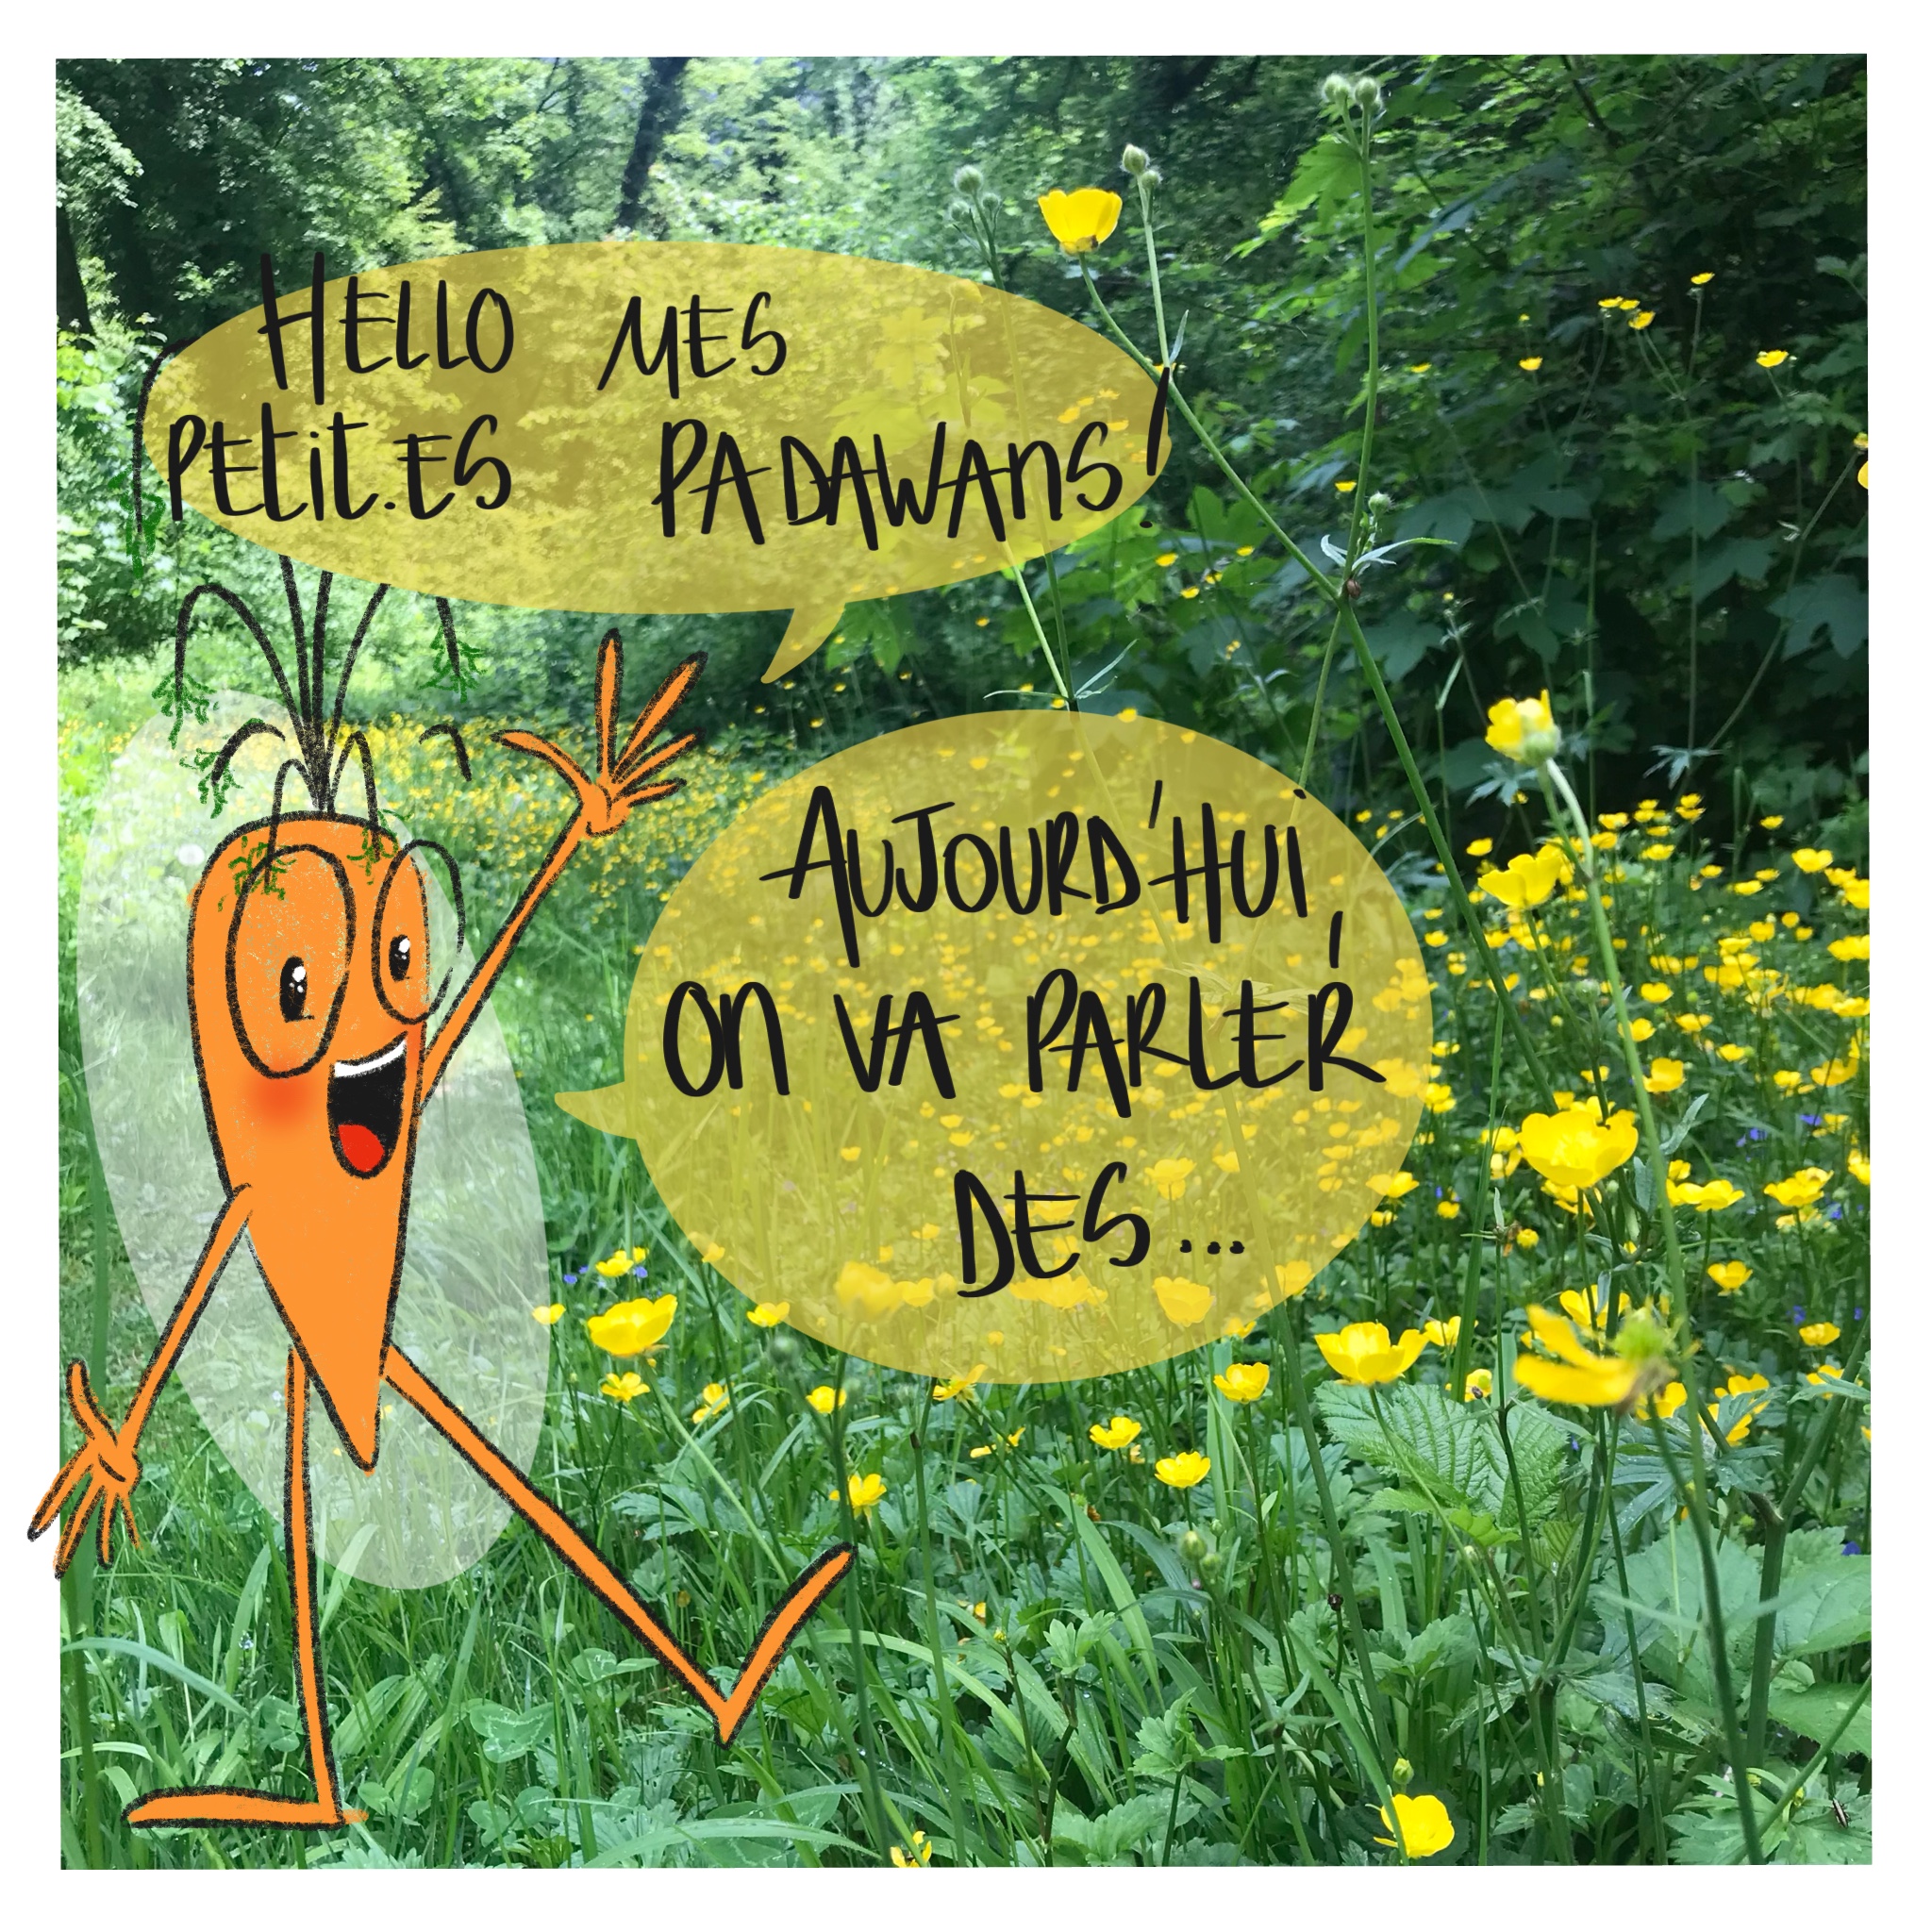 HELLO MES
PETIT.ES PADAWANS!
AUJOURD'HUI,
ON VA PARLER
DES...